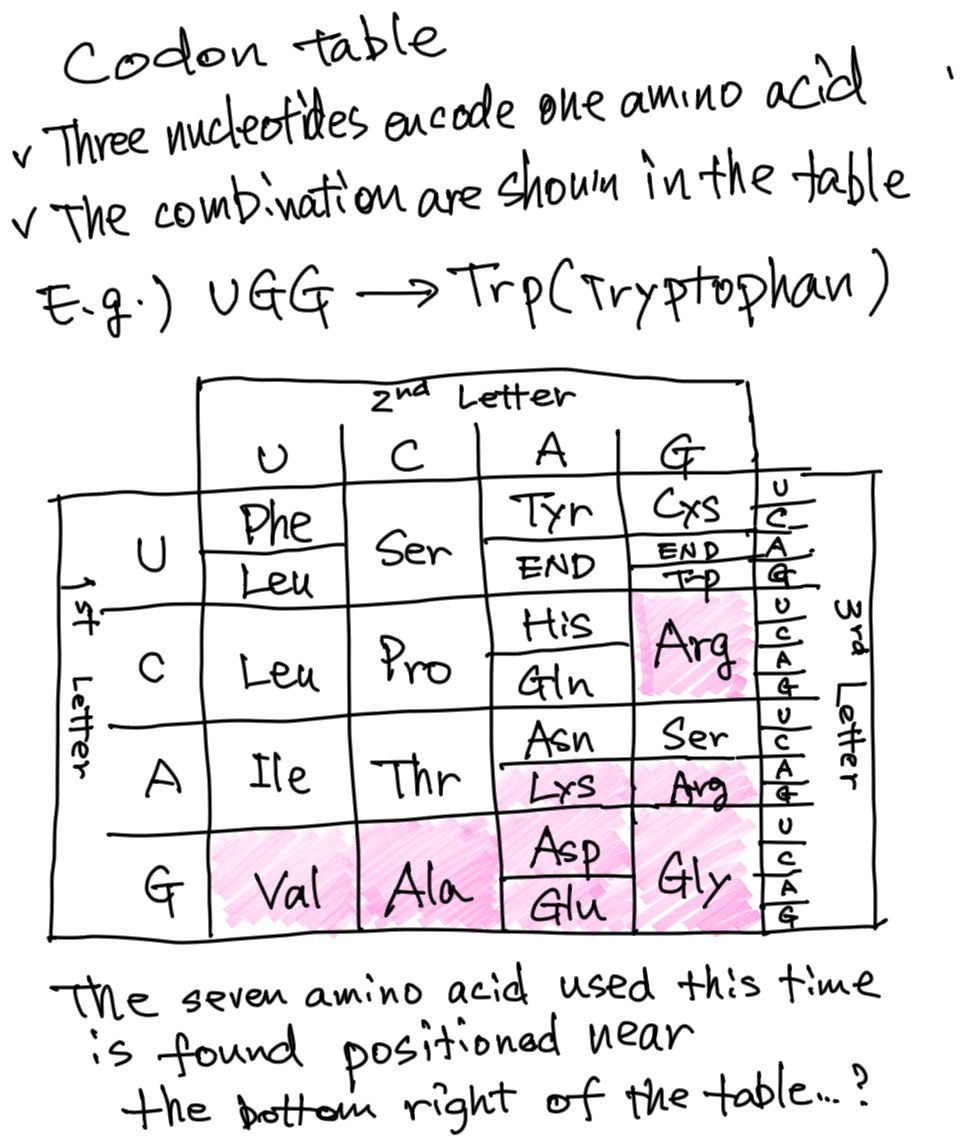 Codon table
✓ Three nucleotides encode one amino acid
✓ The combination are shown in the table
E.g.) UGG → Trp(Tryptophan)
2nd Letter
U C A G
1st Letter
3rd Letter
U Phe Ser Tyr Cys U
C
Leu END END A
Trp G
C Leu Pro His Arg U
C
Gln A
G
A Ile Thr Asn Ser U
C
Lys Arg A
G
G Val Ala Asp Gly U
C
Glu A
G
The seven amino acid used this time
is found positioned near
the bottom right of the table...?